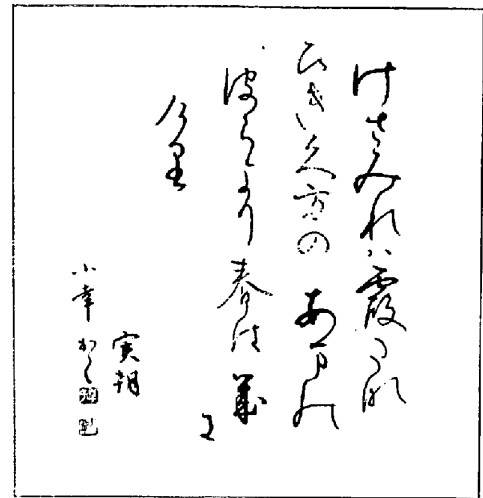 けさみれハ霞たな
ひき久方のあまの
波らより春は来に
介里
実朝
小幸かく